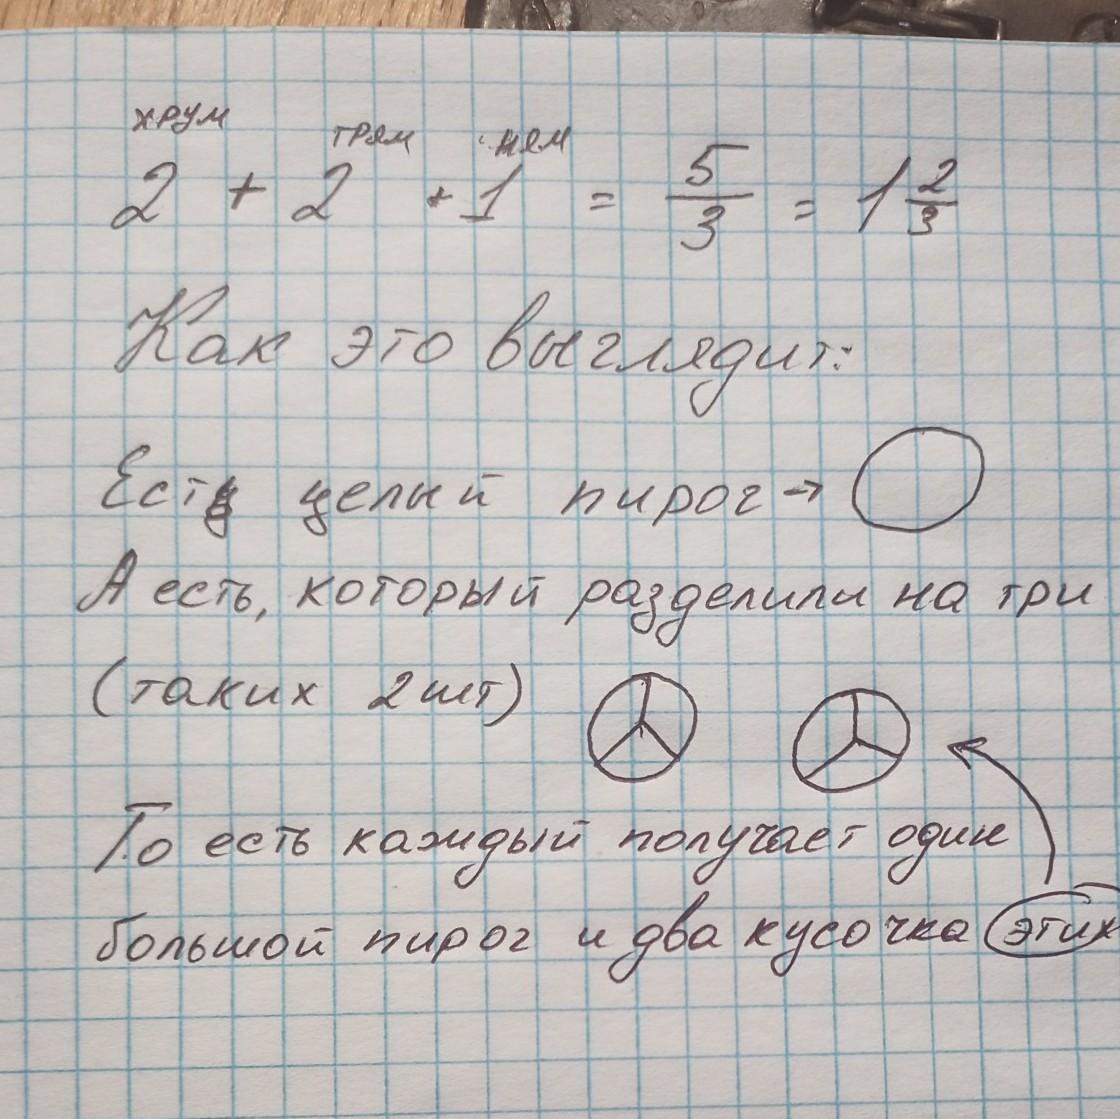 хрум трям ням
2 + 2 + 1 = 5/3 = 1 2/3
Как это выглядит:
Есть целый пирог →
А есть, который разделили на три
(таких 2 шт)
То есть каждый получает один
большой пирог и два кусочка этих